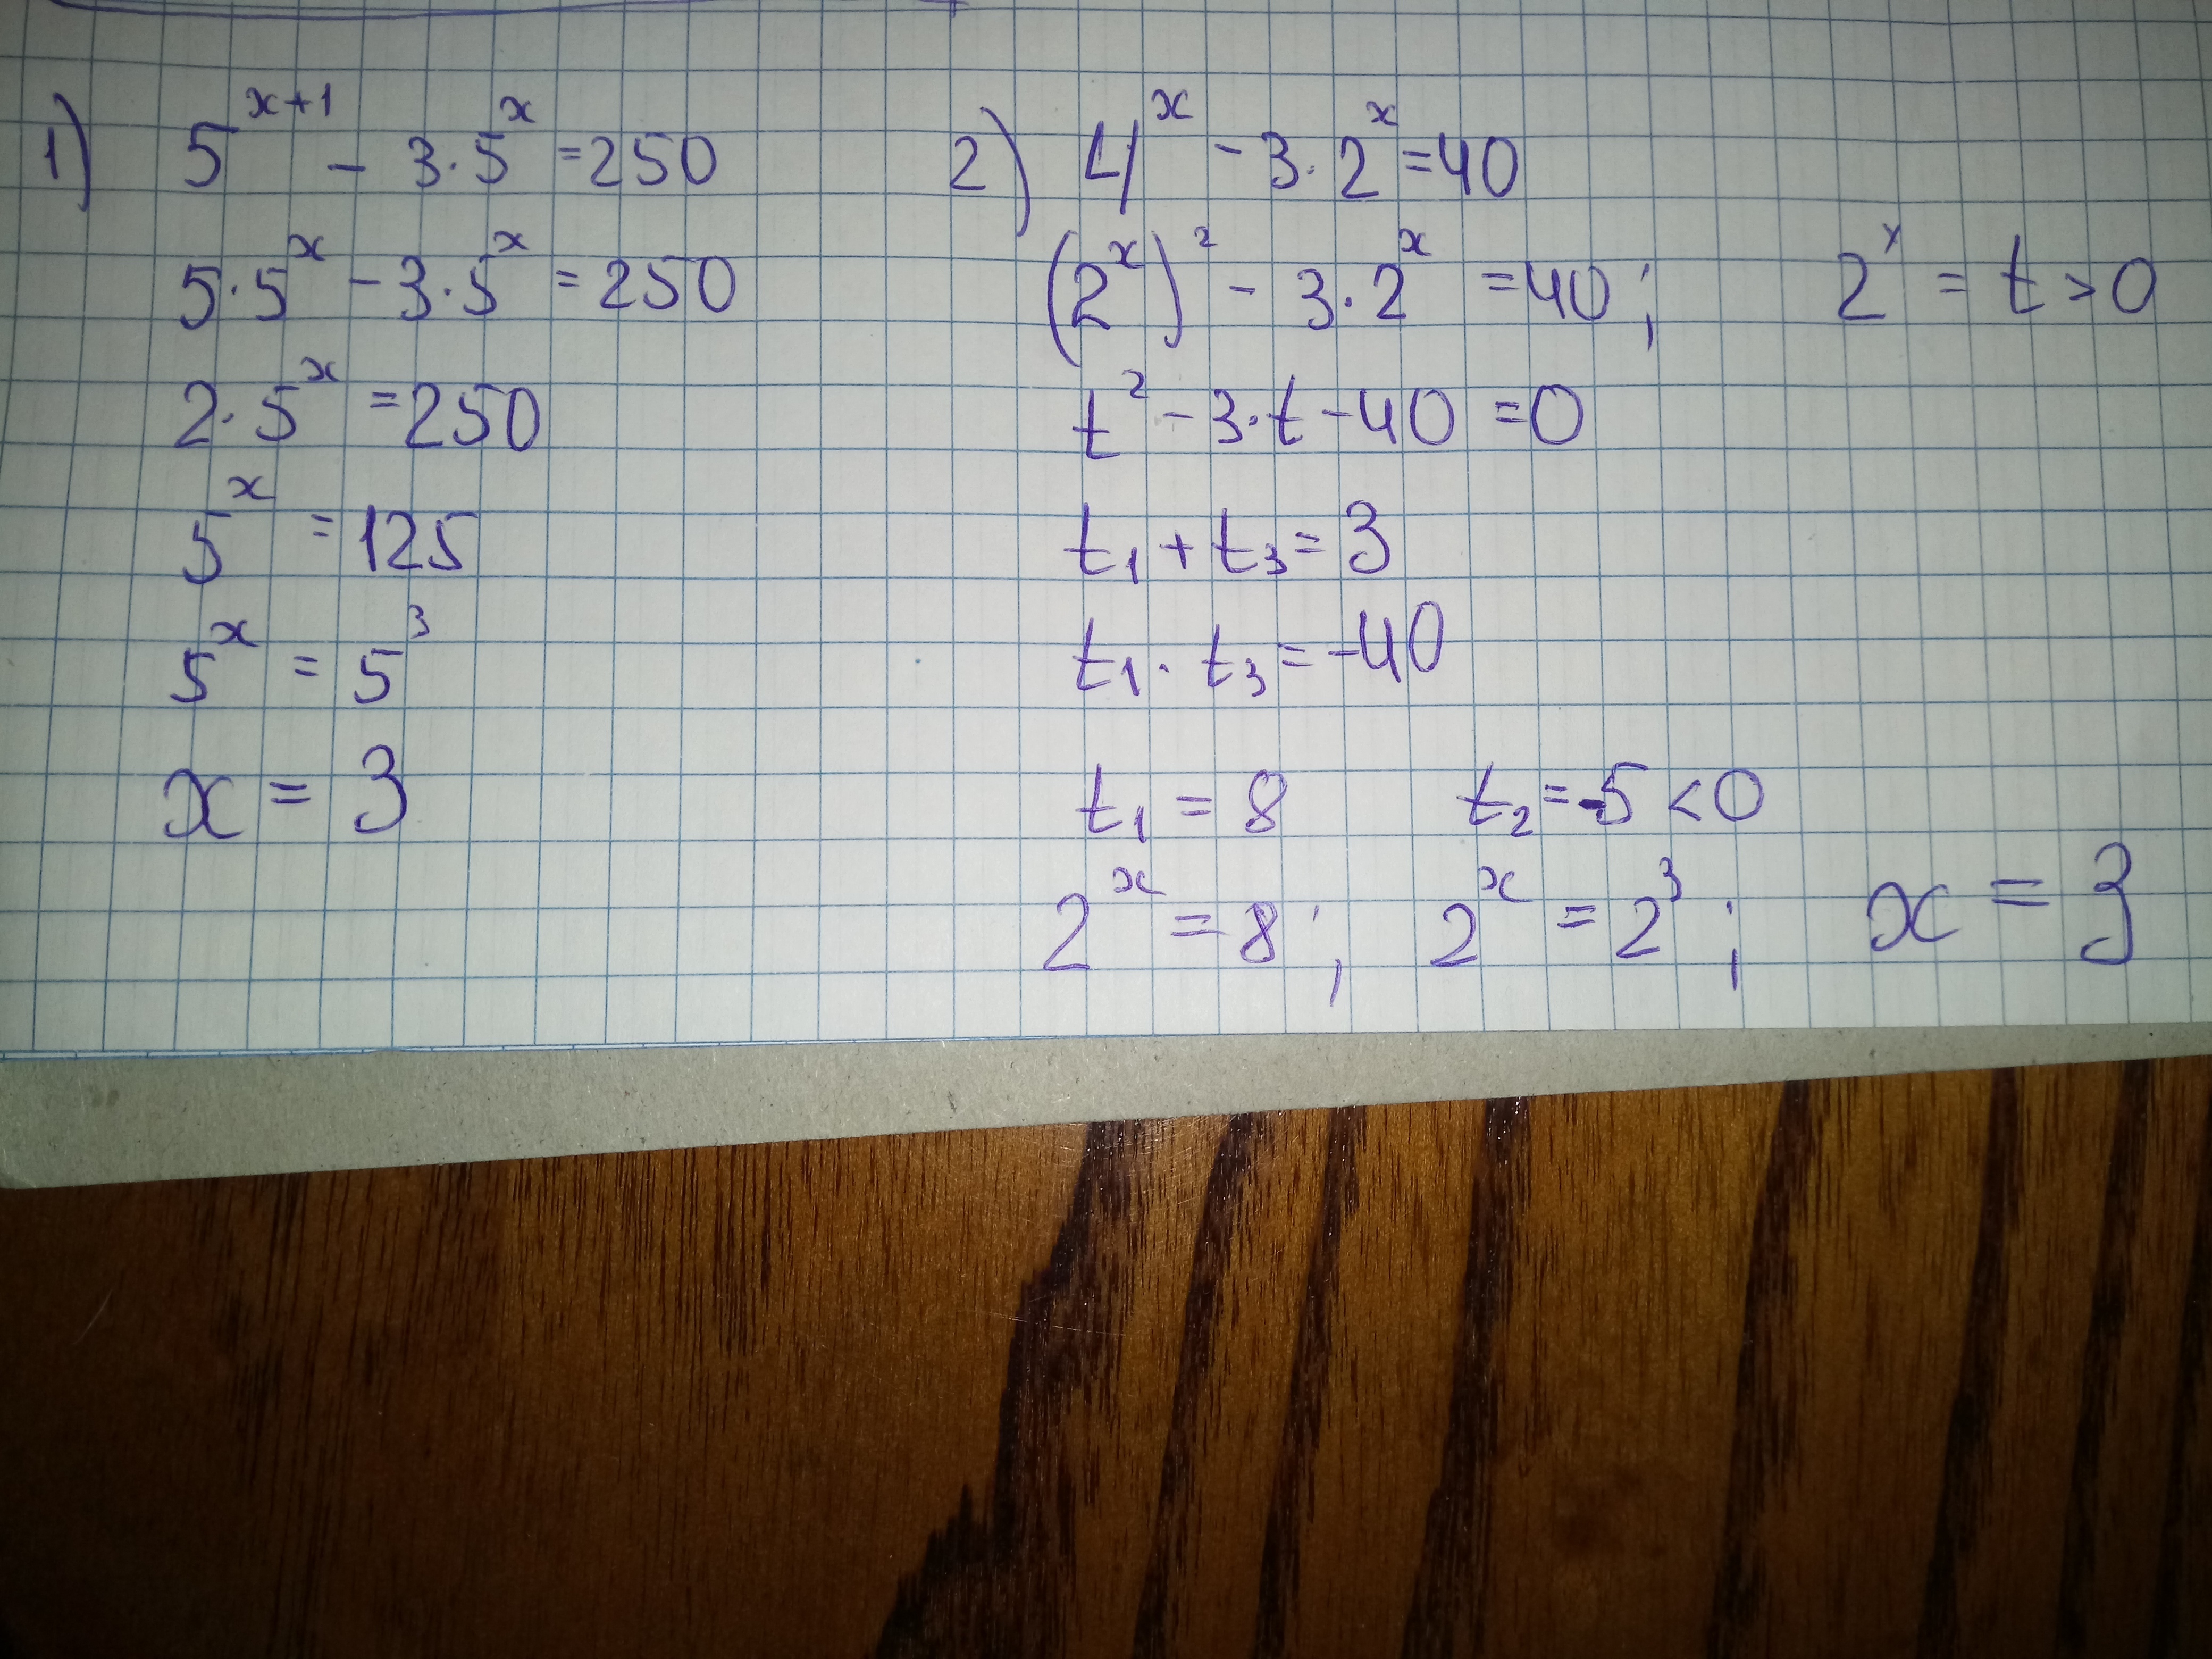 1) 5^{x+1} - 3·5^x = 250
5·5^x - 3·5^x = 250
2·5^x = 250
5^x = 125
5^x = 5^3
x = 3
2) 4^x - 3·2^x = 40
(2^x)^2 - 3·2^x = 40; 2^x = t > 0
t^2 - 3·t - 40 = 0
t_1 + t_3 = 3
t_1 · t_3 = -40
t_1 = 8 t_2 = -5 < 0
2^x = 8; 2^x = 2^3; x = 3